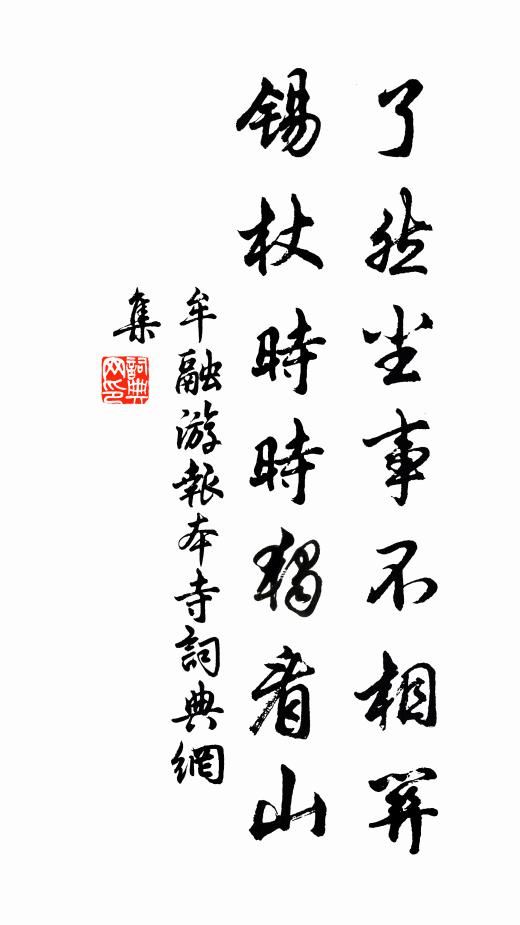 了然尘事不相關
锡杖時時獨看山
牟融游報本寺詞典網
集
詞典
网印